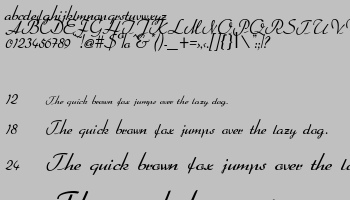 abcdefghijklmnopqrstuvwxyz
ABCDEFGHIJKLMNOPQRSTUV
0123456789
12 The quick brown fox jumps over the lazy dog.
18 The quick brown fox jumps over the lazy dog.
24 The quick brown fox jumps over the la